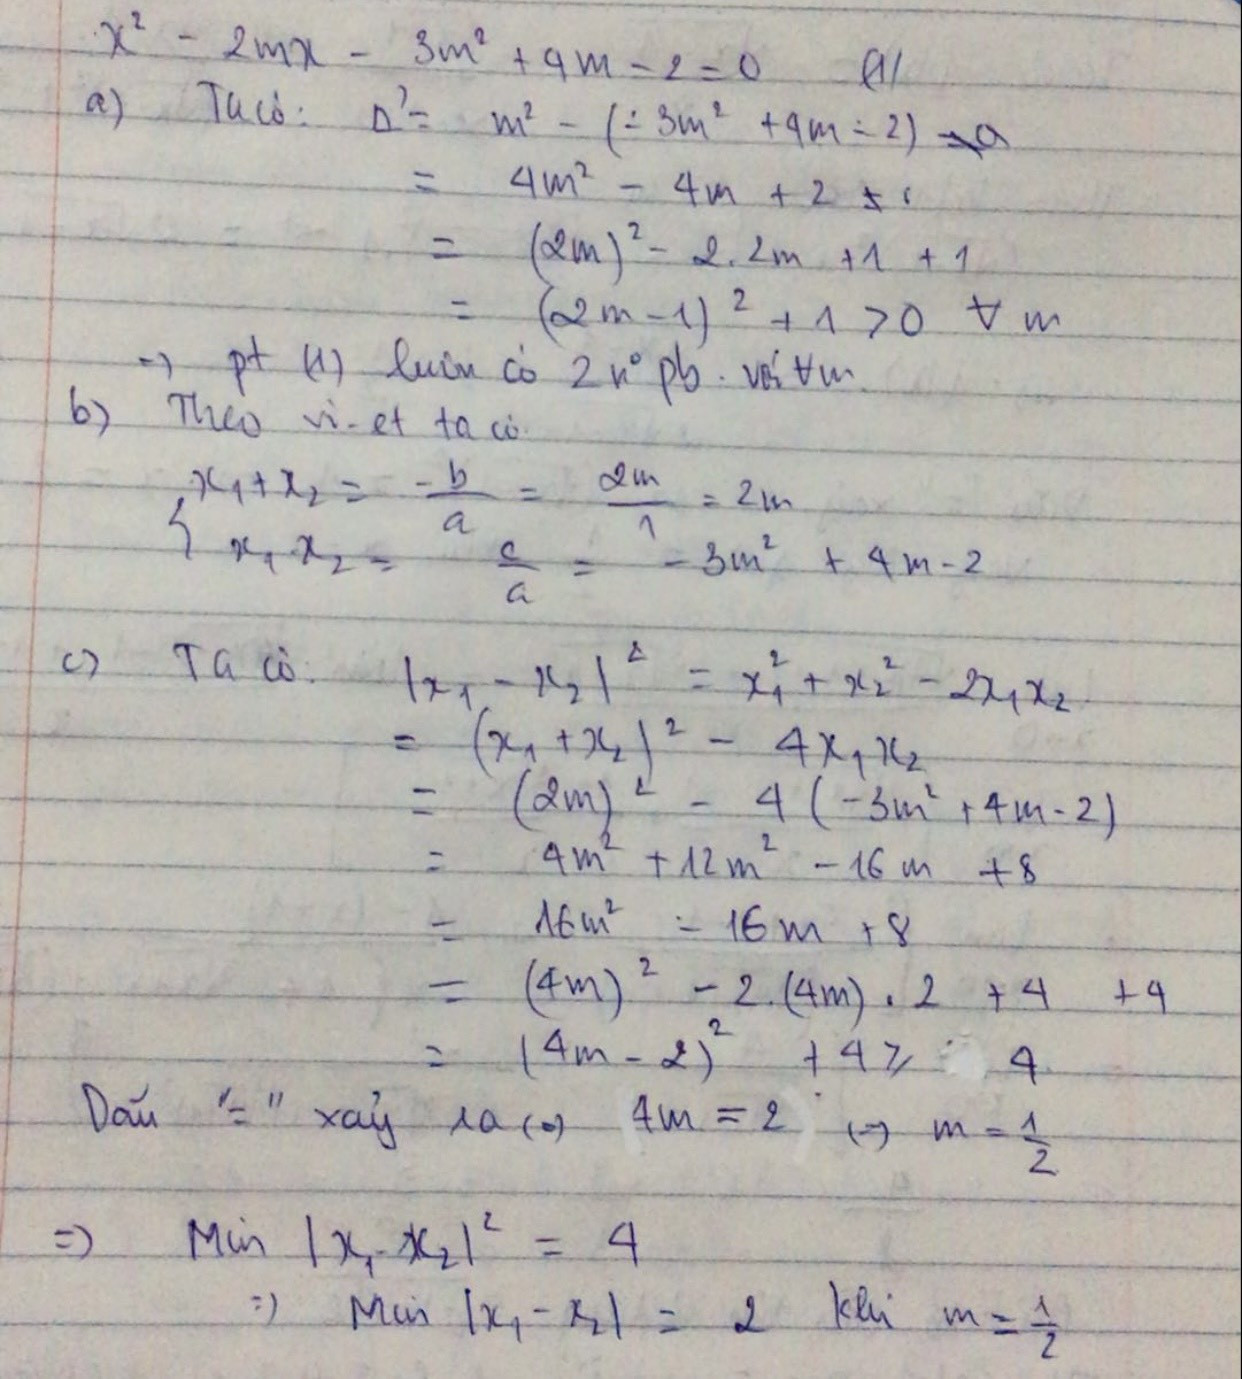 x² - 2mx - 3m² + 4m - 2 = 0 (1)
a) Ta có: Δ' = m² - (-3m² + 4m - 2)
= 4m² - 4m + 2
= (2m)² - 2.2m + 1 + 1
= (2m - 1)² + 1 > 0 ∀ m
=> pt (1) luôn có 2 n° pb. với ∀m.
b) Theo vi-et ta có
{ x₁ + x₂ = -b/a = 2m/1 = 2m
x₁ x₂ = c/a = -3m² + 4m - 2
c) Ta có: |x₁ - x₂|² = x₁² + x₂² - 2x₁x₂
= (x₁ + x₂)² - 4x₁x₂
= (2m)² - 4(-3m² + 4m - 2)
= 4m² + 12m² - 16m + 8
= 16m² - 16m + 8
= (4m)² - 2.(4m).2 + 4 + 4
= (4m - 2)² + 4 ≥ 4
Dấu "=" xảy ra <=> 4m = 2 <=> m = 1/2
=> Min |x₁ - x₂|² = 4
=> Min |x₁ - x₂| = 2 khi m = 1/2